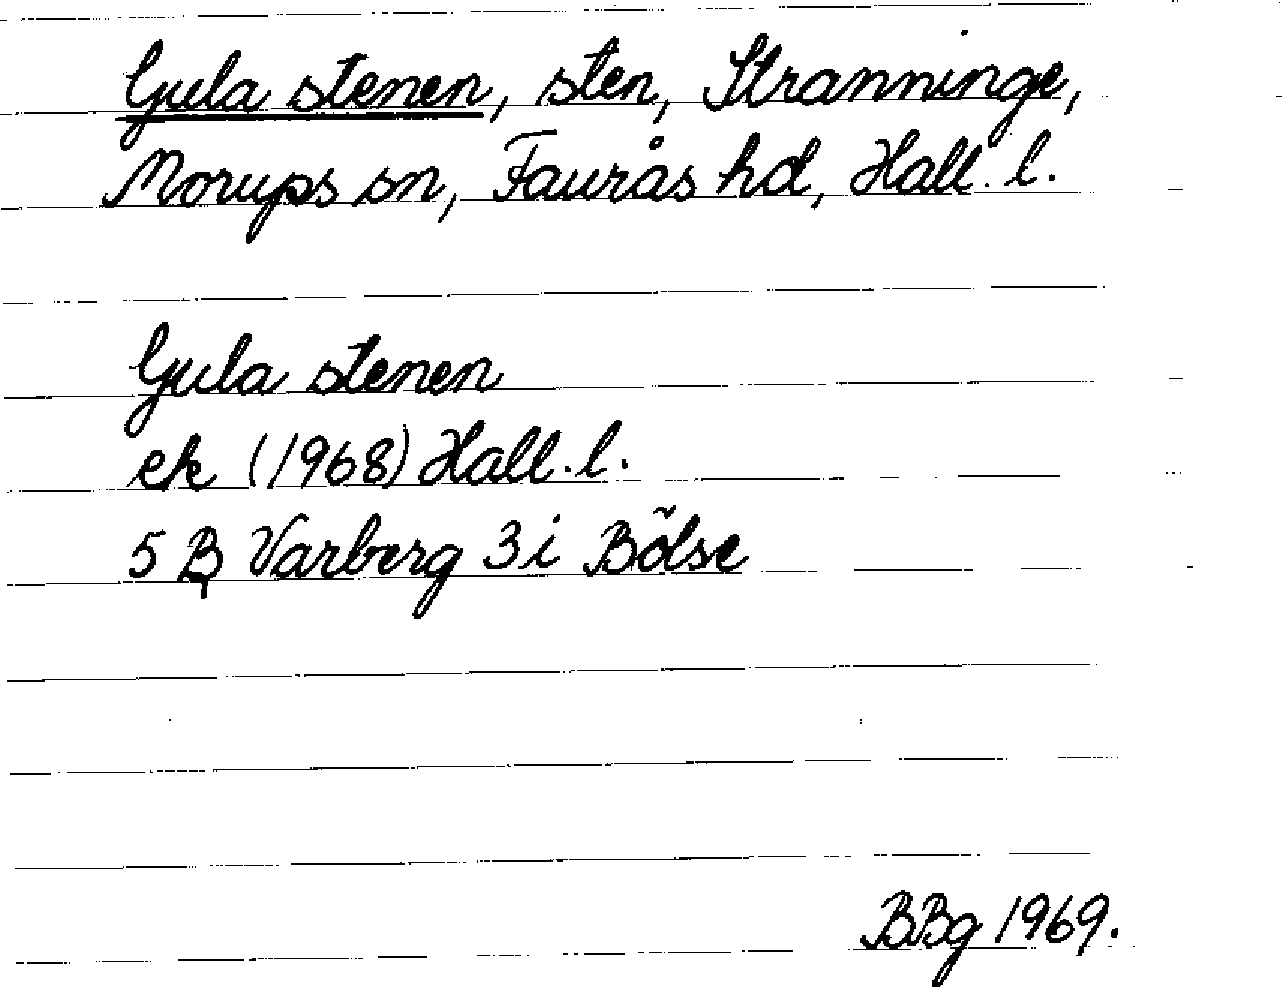 Gula stenen, sten, Stranninge,
Morups sn, Faurås hd, Hall. l.
Gula stenen
ek (1968) Hall. l.
5 B Varberg 3i Bölse
BBg 1969.